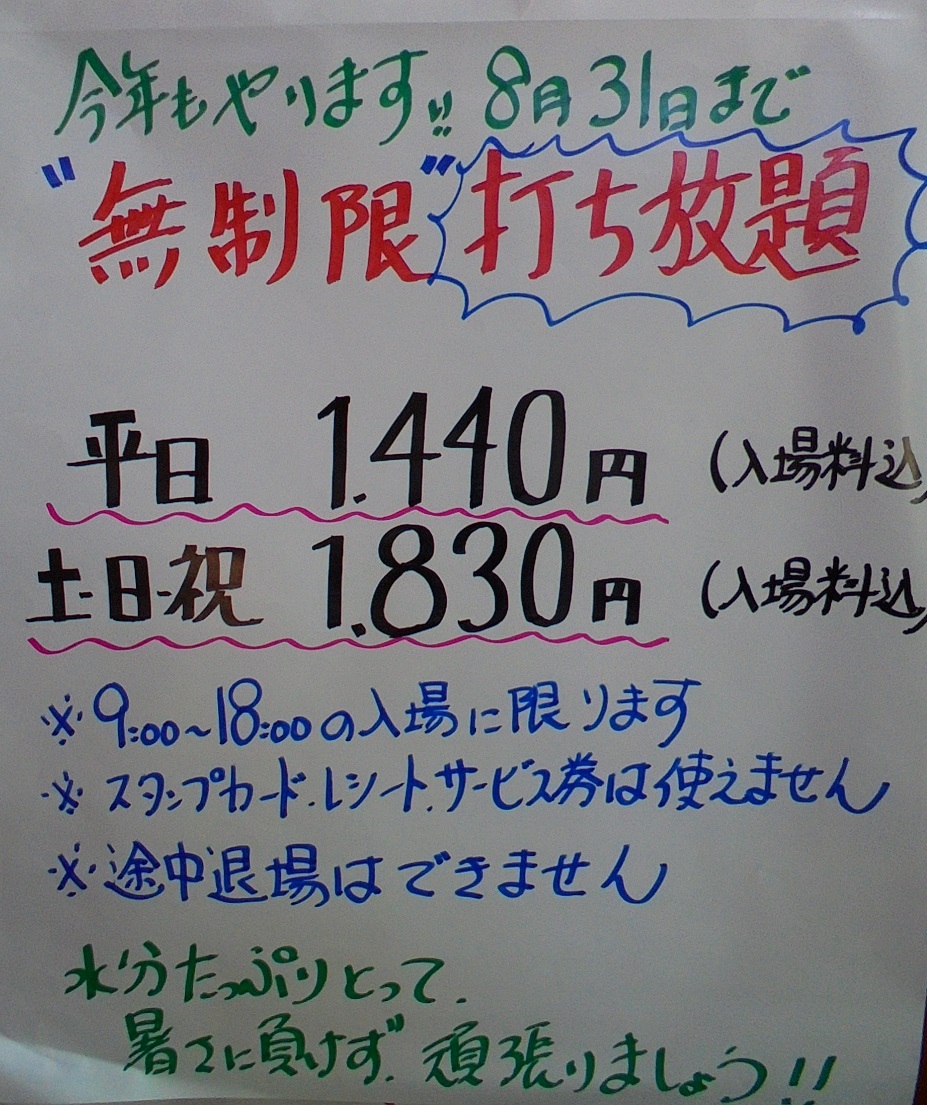 今年もやります!! 8月31日まで
"無制限"打ち放題
平日 1.440円 (入場料込)
土・日・祝 1.830円 (入場料込)
※9:00~18:00の入場に限ります
※スタンプカード.レシート.サービス券は使えません
※途中退場はできません
水分たっぷりとって.
暑さに負けず.頑張りましょう!!